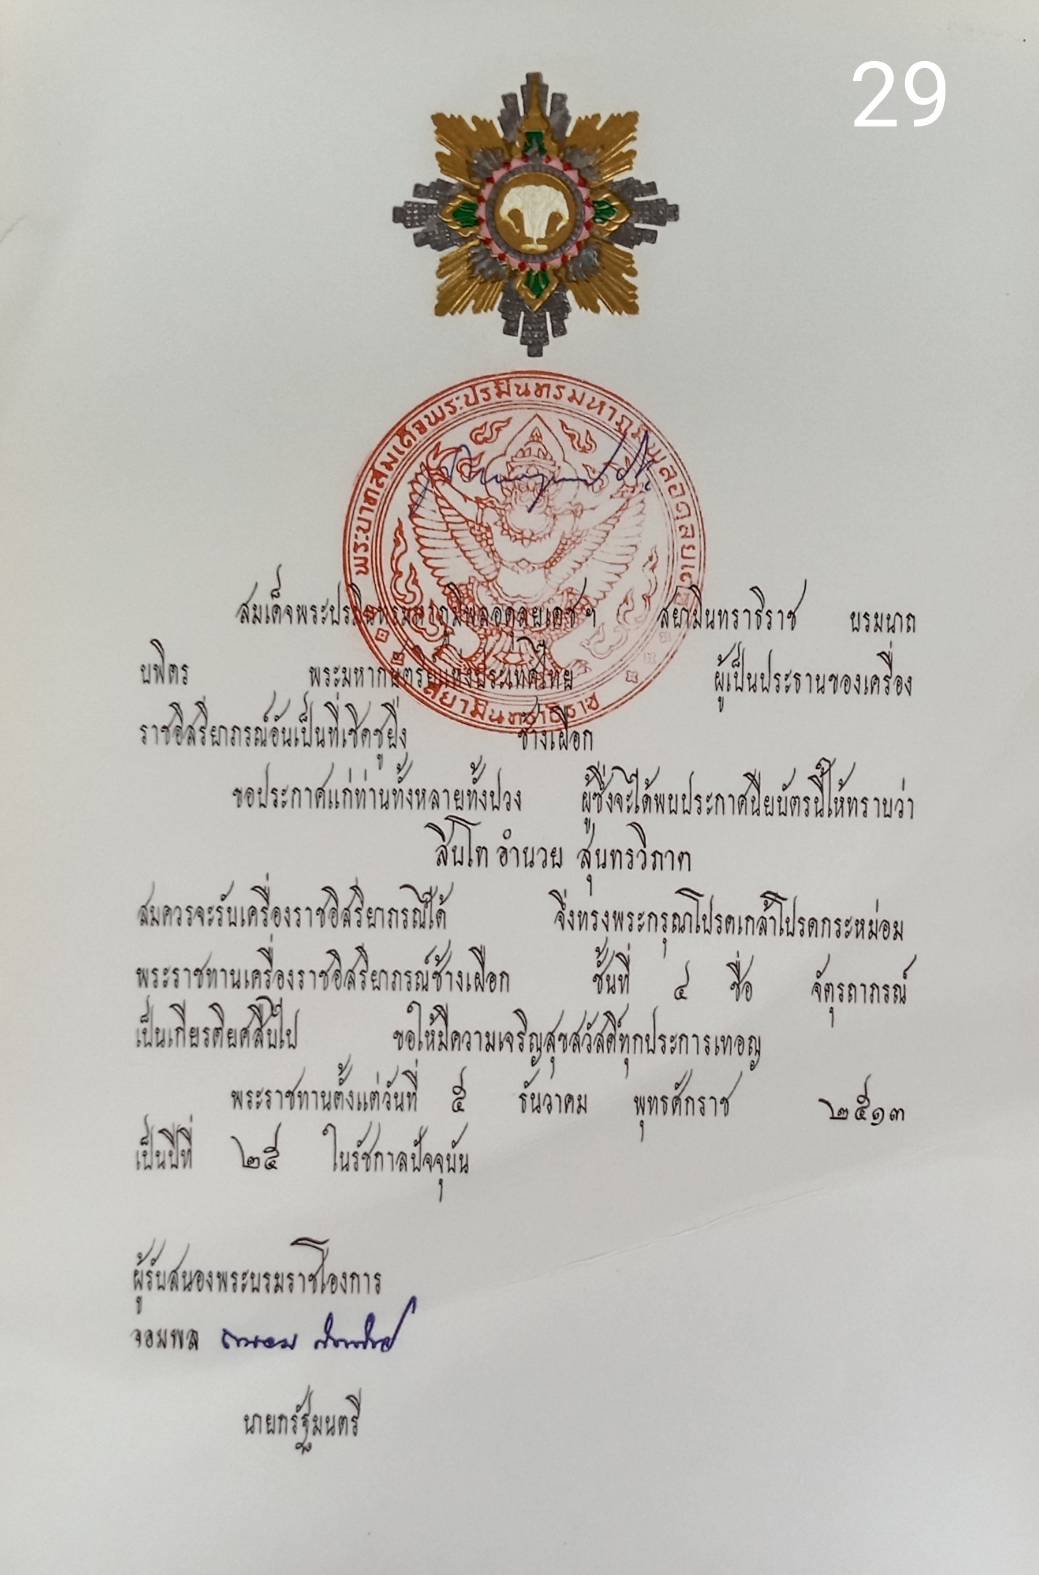 29
พระบาทสมเด็จพระปรมินทรมหาภูมิพลอดุลยเดช
สยามินทราธิราช
สมเด็จพระปรมินทรมหาภูมิพลอดุลยเดชฯ สยามินทราธิราช บรมนาถ
บพิตร พระมหากษัตริย์แห่งประเทศไทย ผู้เป็นประธานของเครื่อง
ราชอิสริยาภรณ์อันเป็นที่เชิดชูยิ่ง ช้างเผือก
ขอประกาศแก่ท่านทั้งหลายทั้งปวง ผู้ซึ่งจะได้พบประกาศนียบัตรนี้ให้ทราบว่า
สิบโท อำนวย สุนทรวิภาต
สมควรจะรับเครื่องราชอิสริยาภรณ์ได้ จึ่งทรงพระกรุณาโปรดเกล้าโปรดกระหม่อม
พระราชทานเครื่องราชอิสริยาภรณ์ช้างเผือก ชั้นที่ ๔ ชื่อ จัตุรถาภรณ์
เป็นเกียรติยศสืบไป ขอให้มีความเจริญสุขสวัสดิ์ทุกประการเทอญ
พระราชทานตั้งแต่วันที่ ๕ ธันวาคม พุทธศักราช ๒๕๑๓
เป็นปีที่ ๒๕ ในรัชกาลปัจจุบัน
ผู้รับสนองพระบรมราชโองการ
จอมพล ถนอม กิตติขจร
นายกรัฐมนตรี